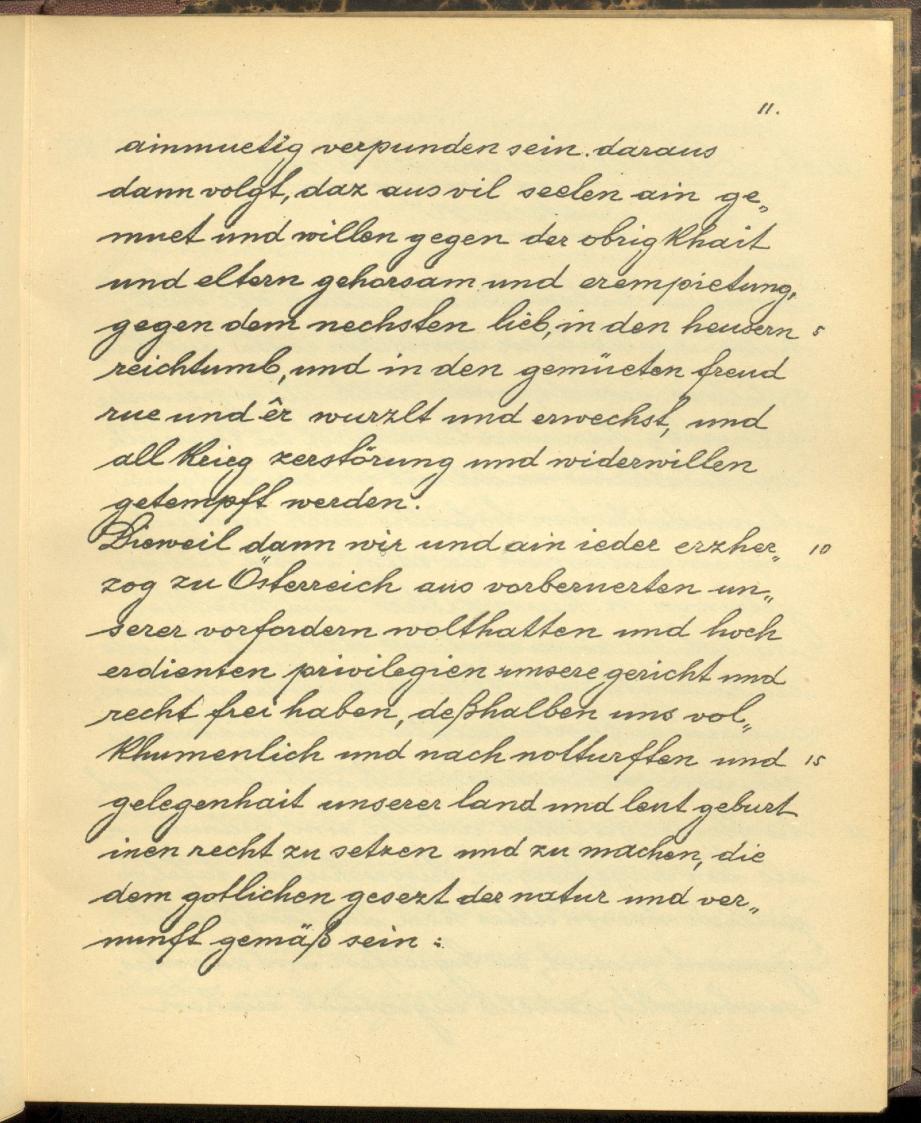 11.
ainmuetig verpunden sein. daraus
dann volgt, daz aus vil seelen ain ge„
muet und willen gegen der obrigkhait
und eltern gehorsam und erempietung,
gegen dem nechsten lieb, in den heusern 5
reichtumb, und in den gemüeten freud
rue und êr wurzlt und erwechst, und
all krieg zerstörung und widerwillen
getempft werden.
Dieweil dann wir und ain ieder erzher„ 10
zog zu Österreich aus vorberuerten un„
serer vorfordern wolthatten und hoch
erdienten privilegien unsere gericht und
recht frei haben, deßhalben uns vol„
khumenlich und nach notturfften und 15
gelegenhait unserer land und leut geburt
inen recht zu setzen und zu machen, die
dem gotlichen gesezt der natur und ver„
nunft gemäß sein :